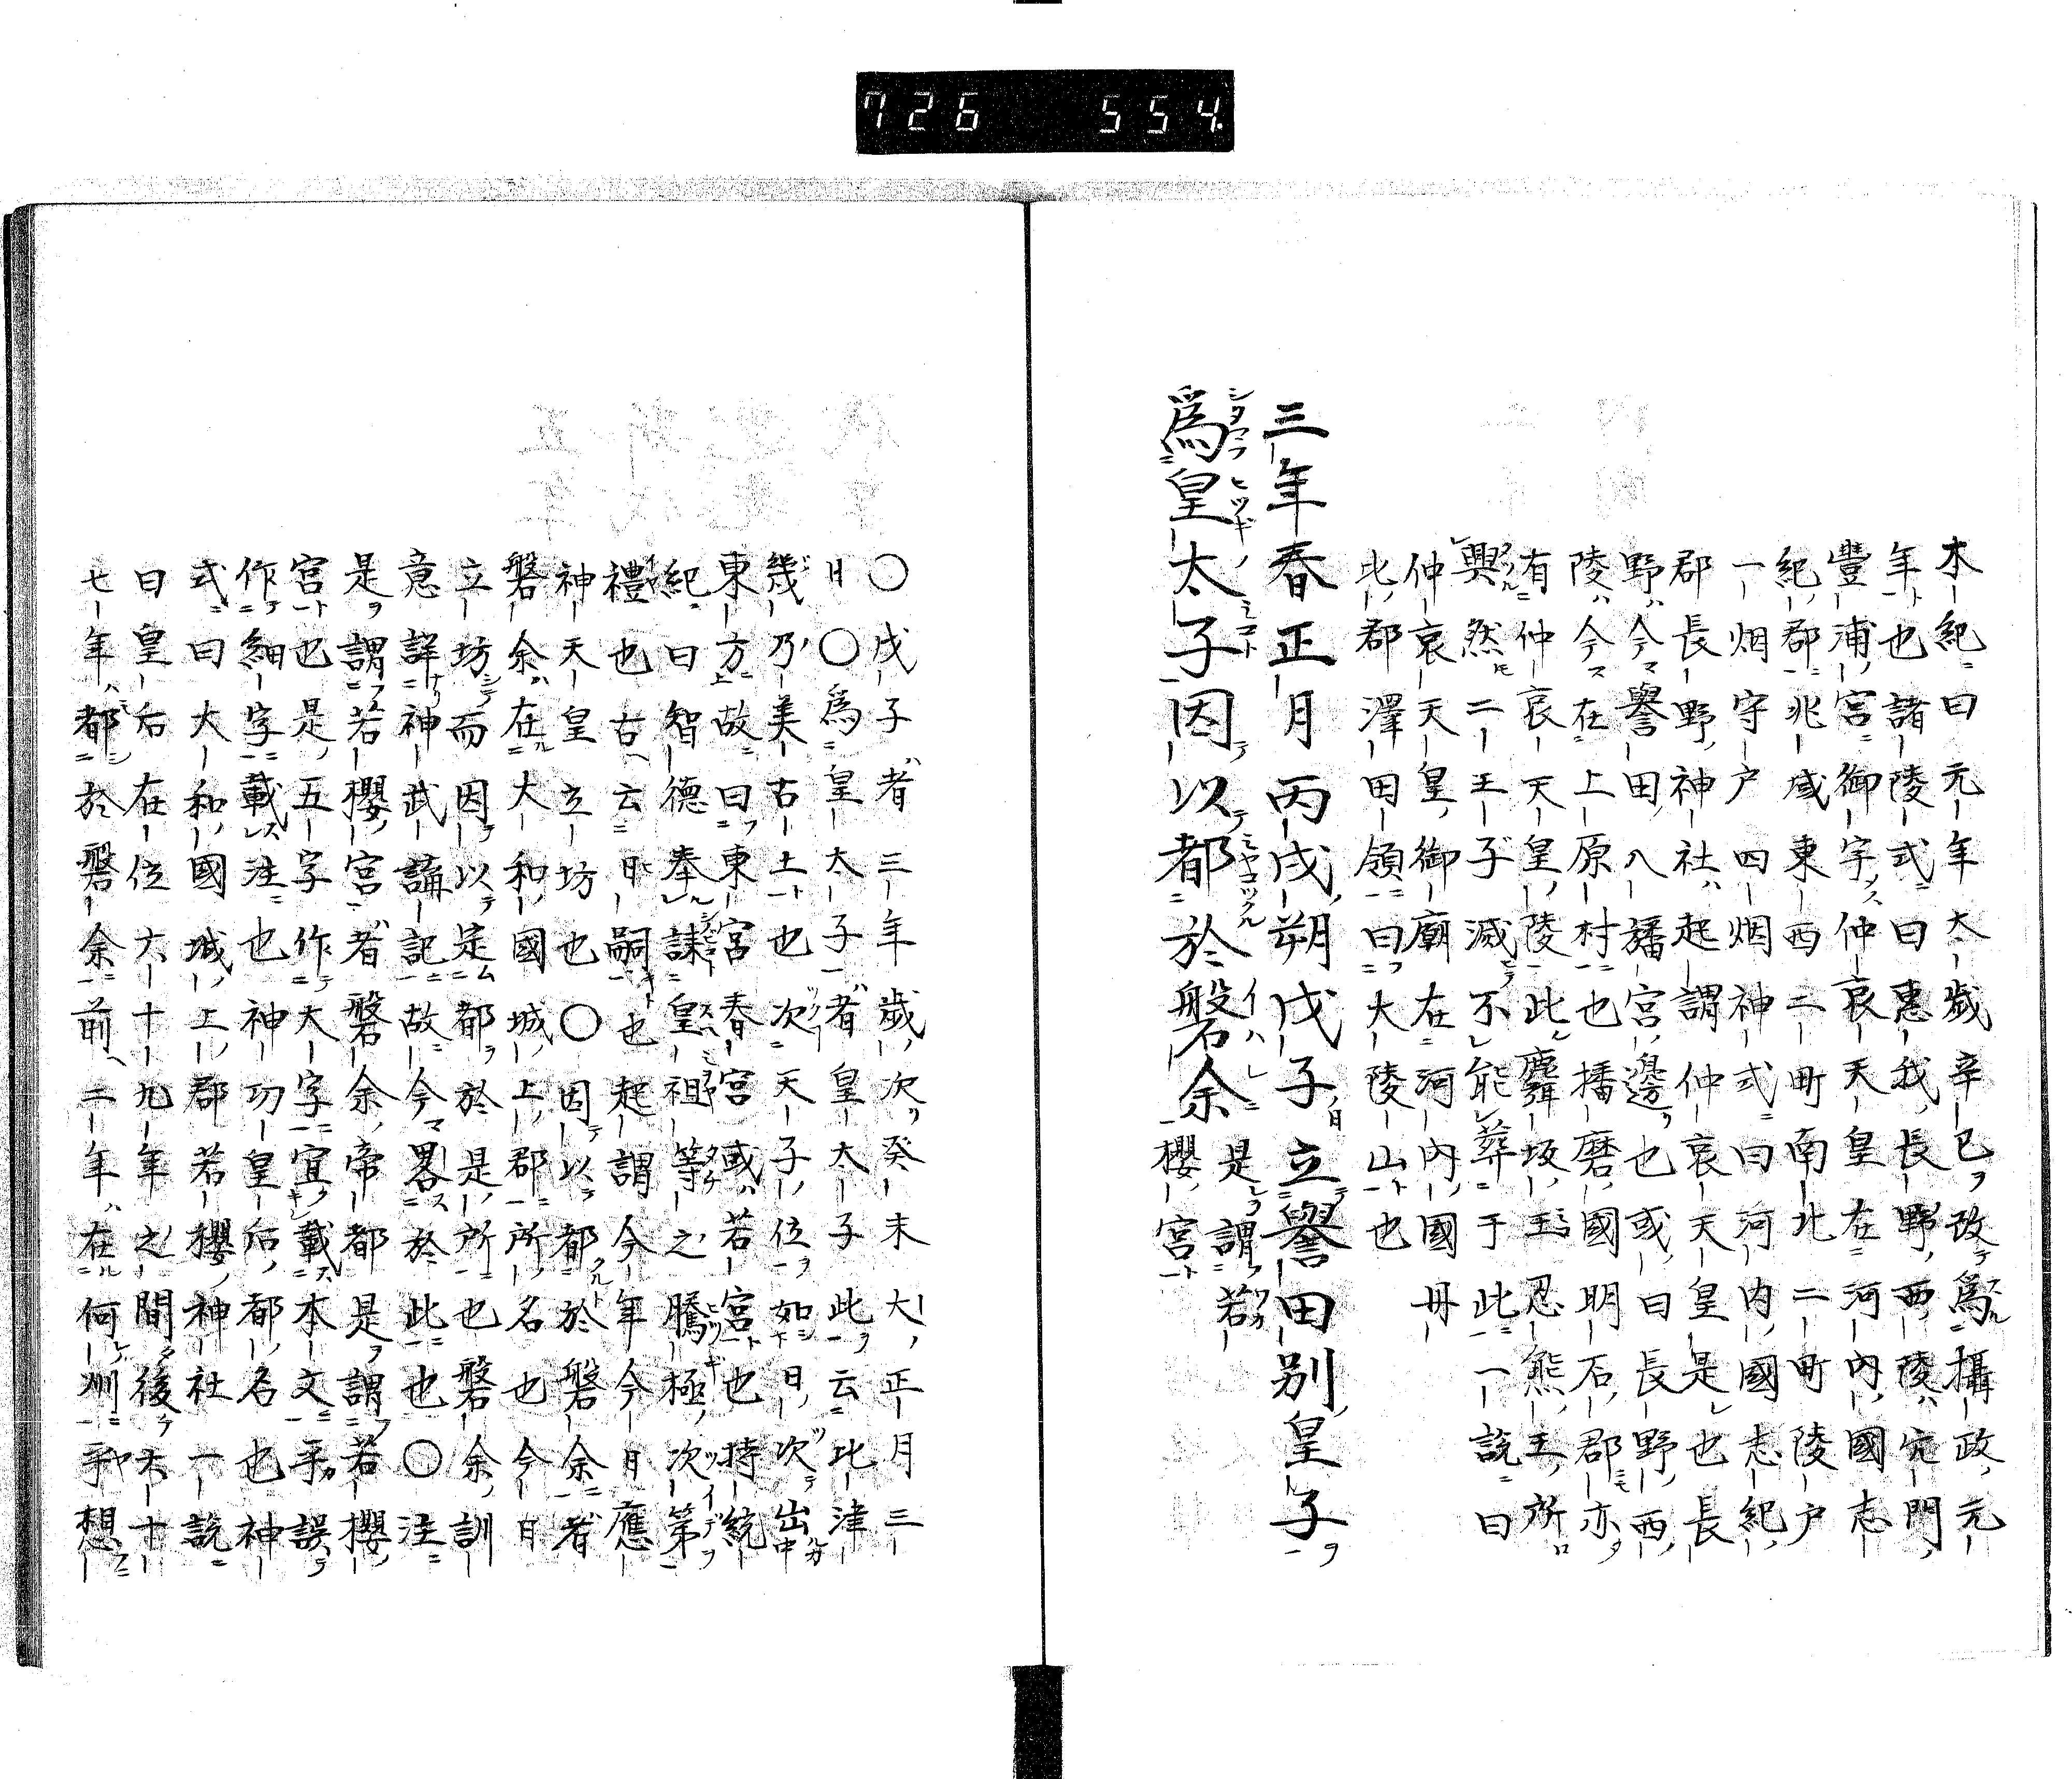 726 554
本紀曰元年大歳辛巳改爲攝政元
年也諸陵式曰惠我長野西陵穴門
豐浦宮御宇仲哀天皇在河內國志
紀郡兆域東西二町南北二町陵戸
一烟守戸四烟神式曰河內國志紀
郡長野神社起謂仲哀天皇是也長
野今譽田八旛宮邊也或曰長野西
陵今在上原村也播磨國明石郡亦
有仲哀天皇陵此麛坂王忍熊王所
興然二王子滅不能葬于此一說曰
仲哀天皇御廟在河內國丹
比郡澤田領曰大陵山也
三年春正月丙戌朔戊子立譽田别皇子
爲皇太子因以都於磐余是謂若
櫻宮
○戊子者三年歲次癸未大正月三
日○爲皇太子者皇太子此云比津
幾乃美古土也次天子位如日次出
東方故曰東宮春宮或若宮也持統
紀曰智德奉誄皇祖等之騰極次第
禮也古云日嗣也起謂今年今日應
神天皇立坊也○因以都於磐余者
磐余在大和國城上郡所名也今日
立坊而因以定都於是所也磐余訓
意詳神武誦記故今畧於此也○注
是謂若櫻宮者磐余帝都是謂若櫻
宮也是五字作大字宜載本文乎誤
作細字載注也神功皇后都名也神
式曰大和國城上郡若櫻神社一說
曰皇后在位六十九年之間後六十
七年都於磐余前二年在何州乎想